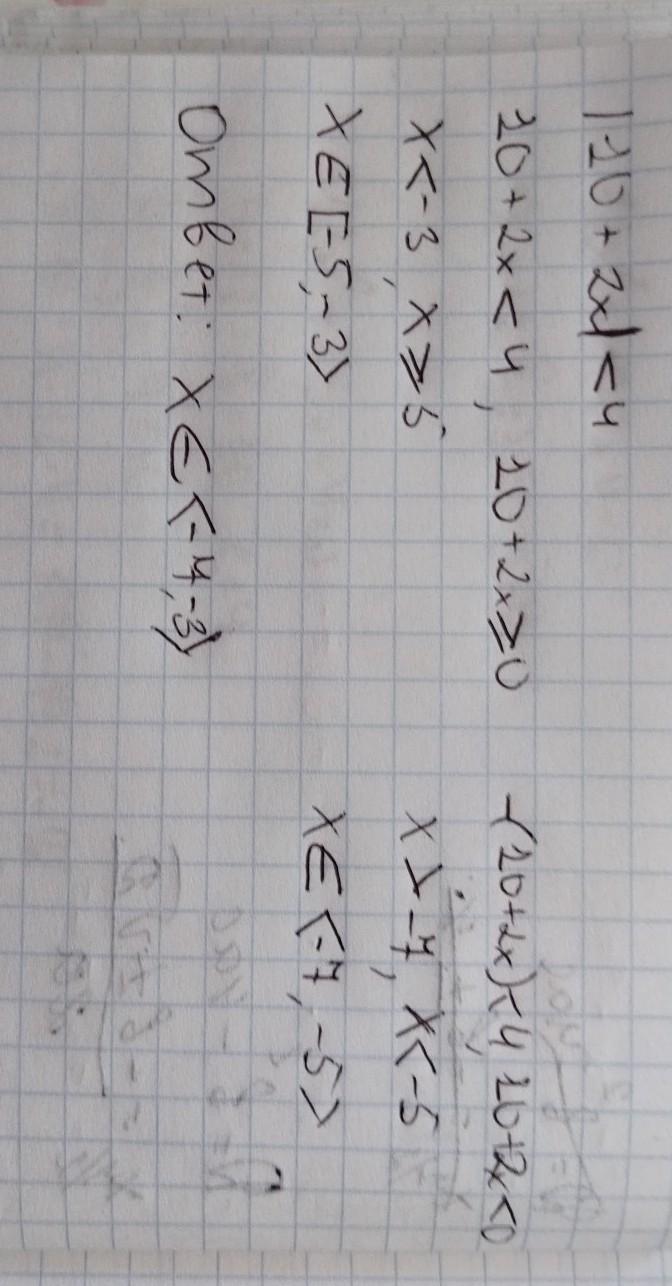 |10 + 2x| < 4
10 + 2x < 4, 10 + 2x ⩾ 0 -(10+2x) < 4 10+2x < 0
x < -3, x ⩾ 5 x > -7, x < -5
x ∈ [-5, -3> x ∈ <-7, -5>
Ответ: x ∈ <-7, -3>